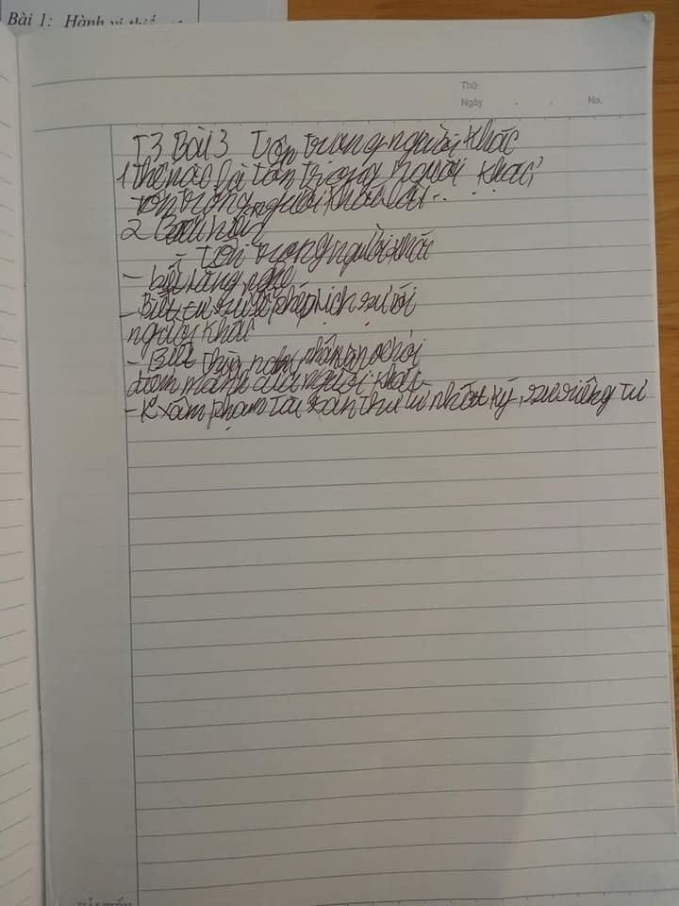 Bài 1: Hành vi thiếu
Thứ
Ngày . . No.
T3 Bài 3 Tôn trọng người khác
1 thế nào là tôn trọng người khác?
tôn trọng người khác là...
2 Biểu hiện
- Tôn trọng người khác
- biết lắng nghe
- Biết cư xử lễ phép lịch sự với
người khác
- Biết thừa nhận
điểm mạnh của người khác
- K xâm phạm tài sản thư từ nhật ký, sự riêng tư